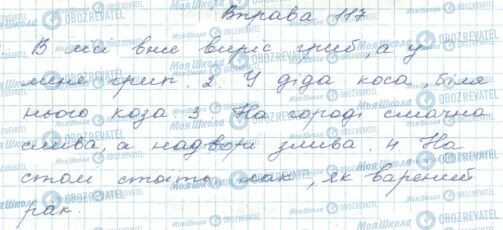 Вправа 117
В лісі вже виріс гриб, а у
мене грип. 2. У діда коса, біля
нього коза. 3. На городі смачна
слива, а надворі злива. 4 На
столі стоїть лак, як варений
рак.